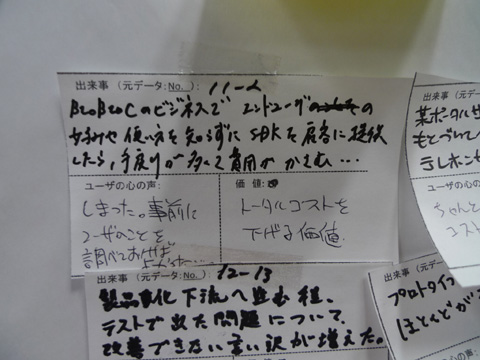 出来事（元データ:No. ）: 11-2
BtoBtoCのビジネスで エンドユーザの
好みや使い方を知らずに SBKを顧客に提供
したら、手戻りが多くて費用がかさむ…
ユーザの心の声:
しまった。事前に
ユーザのことを
調べておけば
よかった…
価値:
トータルコストを
下げる価値.
出来事（元データ:No. ）: 12-13
製品事化下流へ進む程、
テストで出た問題について、
改善できない言い訳が増えた。
出来事（元
某ポータルサ
もとづいて
テレホン
ユーザの心の
ちゃんと
コスト
出来事（元デー
プロトタイプ
ほとんどが